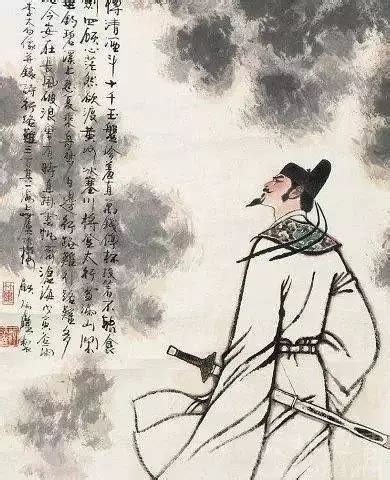 樽清酒斗十千玉盤珍羞直萬錢停杯投箸不能食
劍四顧心茫然欲渡黃河冰塞川將登太行雪滿山閑
垂釣碧溪上忽復乘舟夢日邊行路難行路難多
今安在長風破浪會有時直掛雲帆濟滄海
太白像并錄詩行路難三首其一